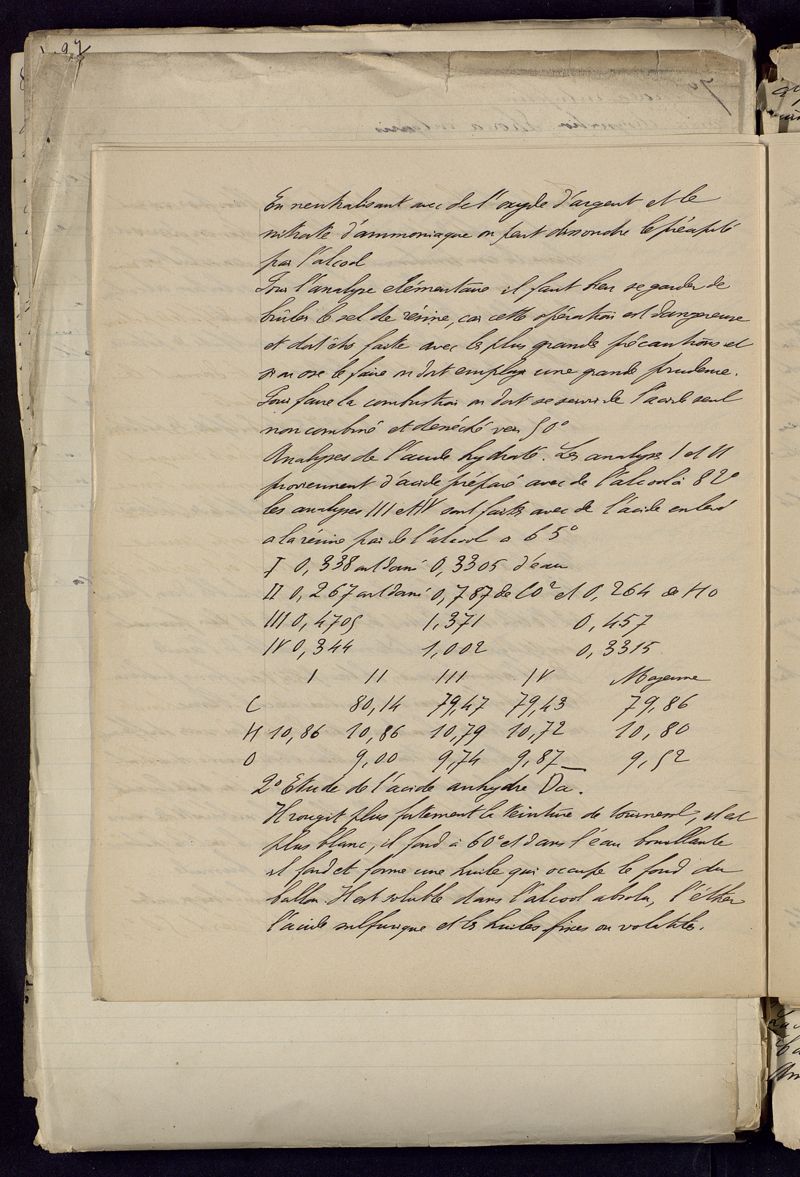 97
En neutralisant avec de l'oxyde d'argent et le
nitrate d'ammoniaque on peut dissoudre le précipité
par l'alcool
Pour l'analyse élémentaire il faut bien se garder de
brûler le sel de résine, car cette opération est dangereuse
et doit être faite avec les plus grande précautions et
si on ose le faire on doit employer une grande prudence.
Pour faire la combustion on doit se servir de l'acide seul
non combiné et desséché vers 50°
Analyses de l'acide hydraté. Les analyses I et II
proviennent d'acide préparé avec de l'alcool à 82°
les analyses III et IV sont faites avec de l'acide enlevé
a la résine par de l'alcool a 65°
I 0,338 ont donné 0,3305 d'eau
II 0,267 ont donné 0,787 de CO² et 0,264 de HO
III 0,4705 1,371 0,457
IV 0,344 1,002 0,3315
I II III IV Moyenne
C 80,14 79,47 79,43 79,86
H 10,86 10,86 10,79 10,72 10,80
O 9,00 9,74 9,87 9,52
2° Etude de l'acide anhydre Da.
Il rougit plus fortement la teinture de tournesol, il est
plus blanc, il fond à 60° et dans l'eau bouillante
il fond et forme une huile qui occupe le fond du
ballon. Il est soluble dans l'alcool absolu, l'éther
l'acide sulfurique et les huiles fixes ou volatiles.